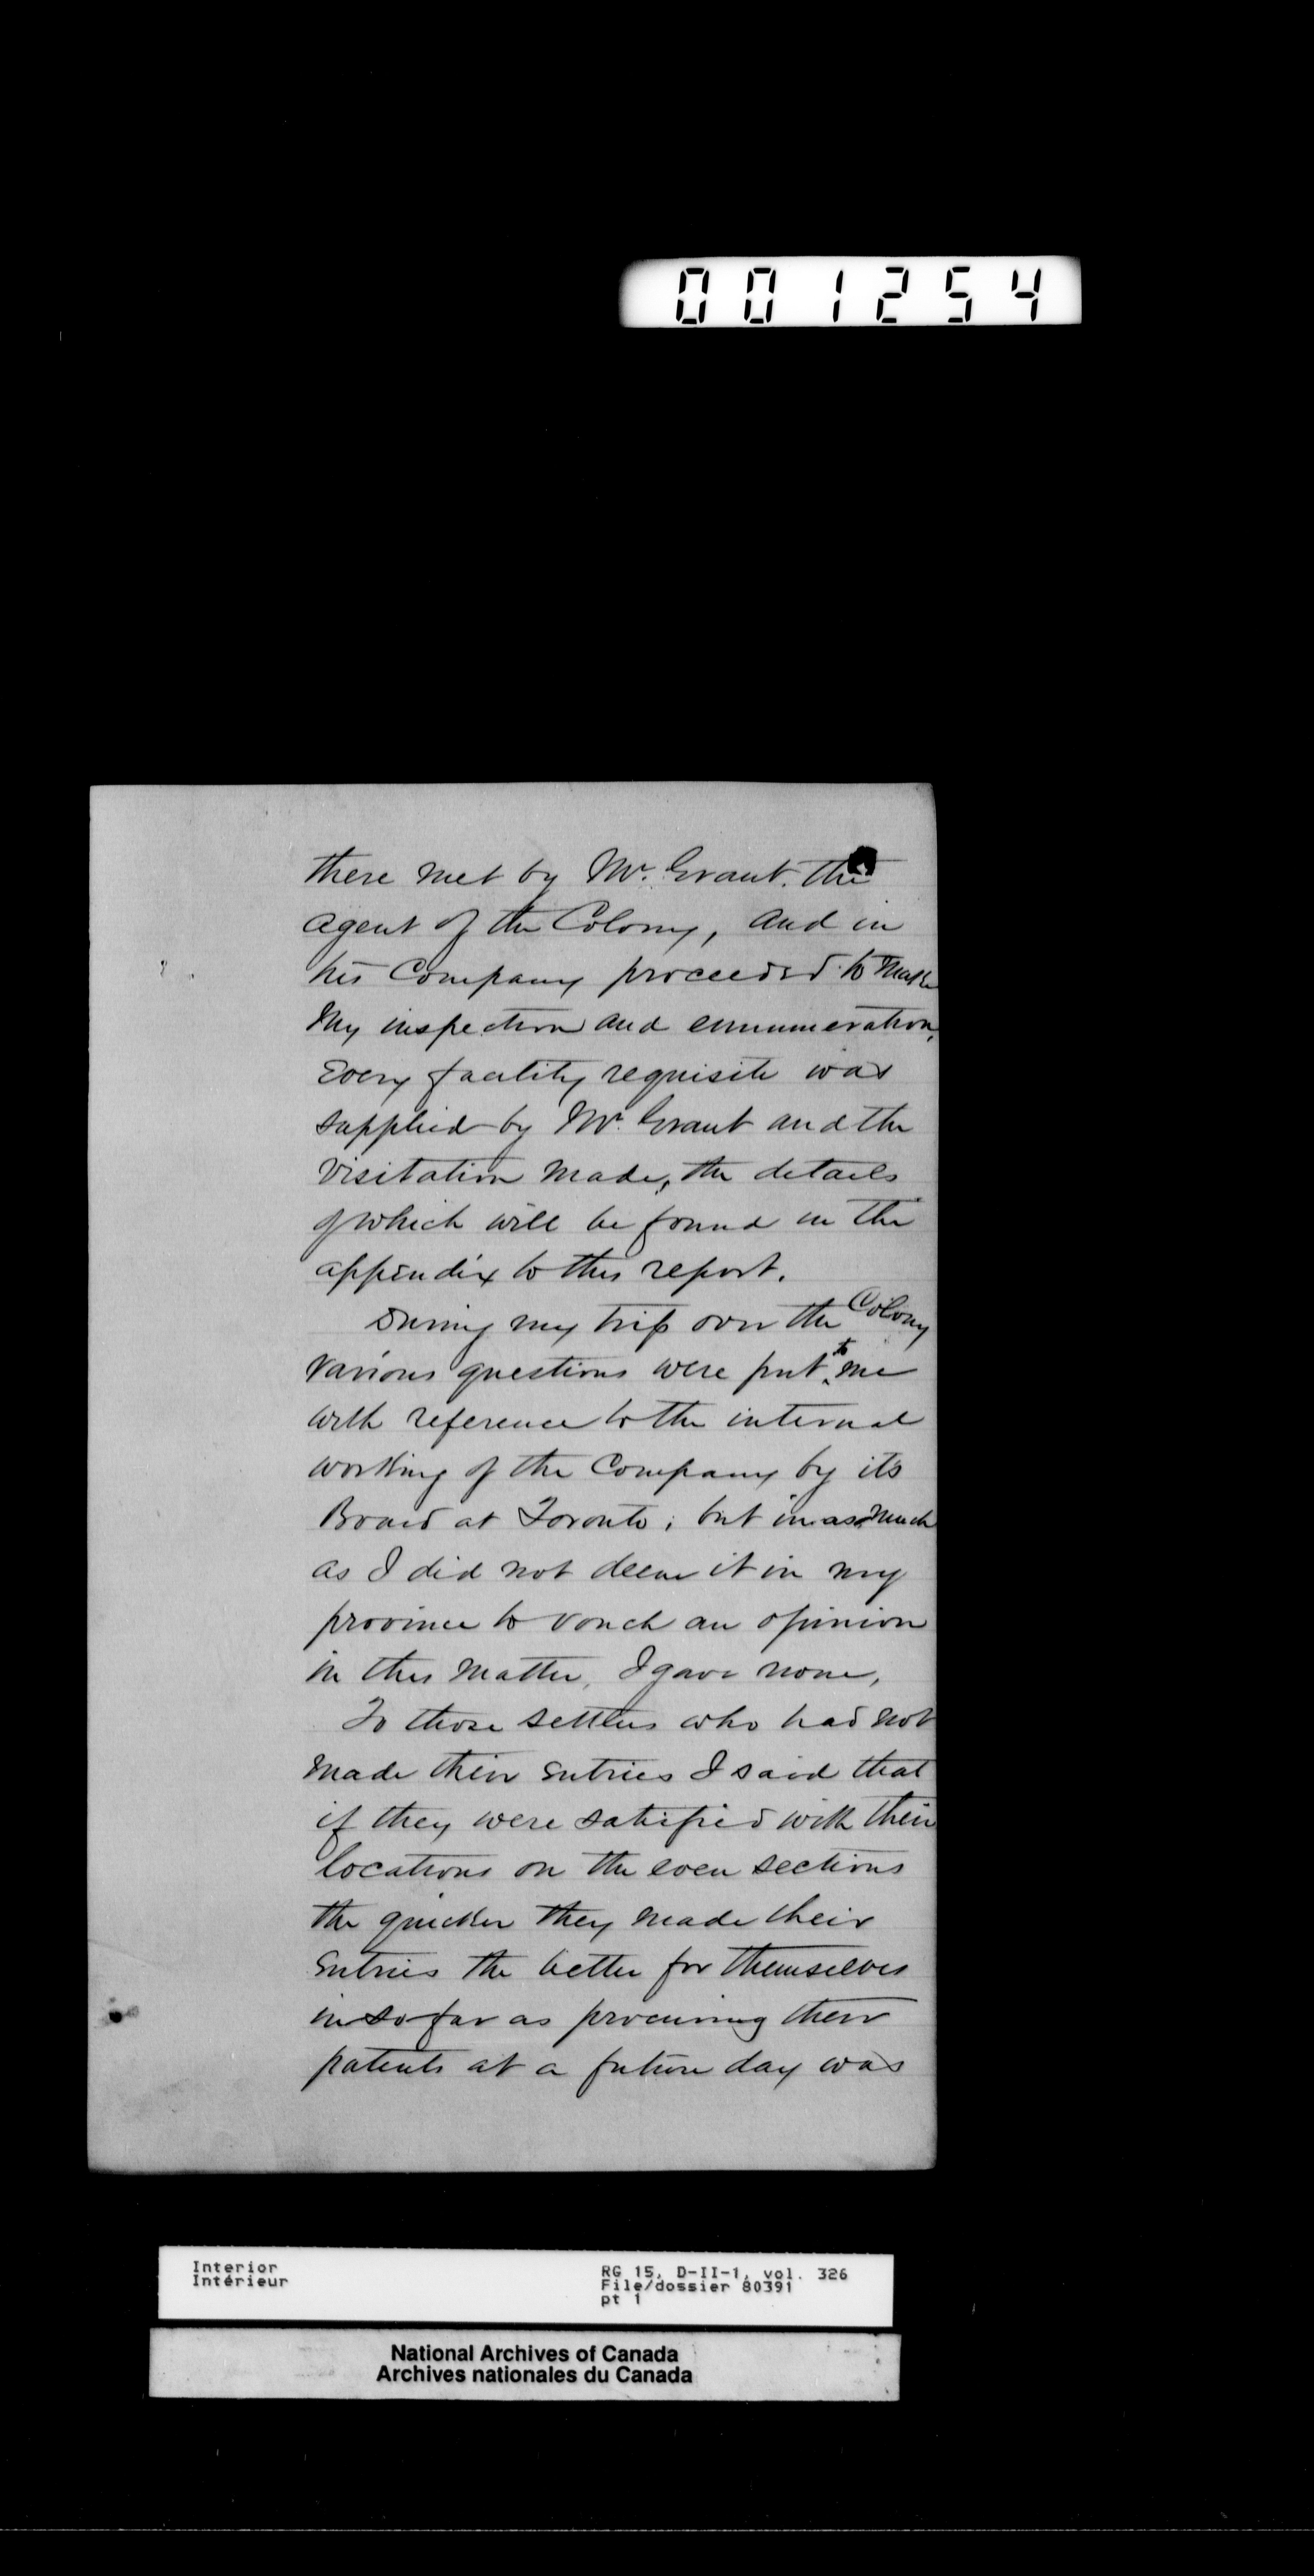 001254
there met by Mr. Grant. the
agent of the Colony, and in
his Company proceeded to make
my inspection and ennumeration,
Every facility requisite was
supplied by Mr. Grant and the
visitation made, the details
of which will be found in the
appendix to this report.
During my trip over the Colony
various questions were put to me
with reference to the internal
working of the Company by its
Board at Toronto; but inasmuch
as I did not deem it in my
province to vouch an opinion
in this matter, I gave none,
To those settlers who had not
made their entries I said that
if they were satisfied with their
locations on the even sections
the quicker they made their
entries the better for themselves
in so far as procuring their
patents at a future day was
Interior
Intérieur
RG 15, D-II-1, vol. 326
File/dossier 80391
pt 1
National Archives of Canada
Archives nationales du Canada